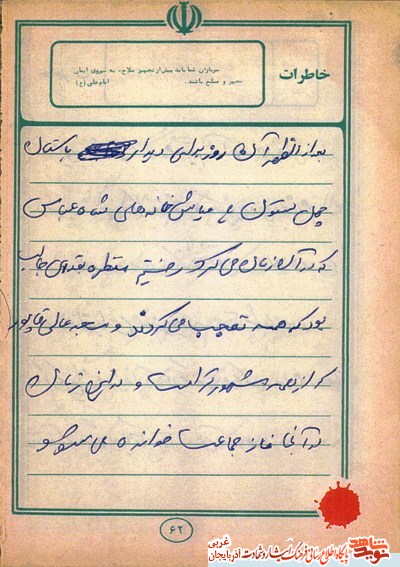 خاطرات
سربازان شما باید پیش از تجهیز سلاح، به نیروی ایمان
مجهز و مسلح باشند. امام علی (ع)
بعد از ظهر آن روز برای دیدار باستان
چهل ستون و عیاش خانه های شاه عباس
که در آن زمان می کرد رفتیم منظره بقدری جالب
بود که همه تعجب می کردند و مسجد عالی قاپو
که از همه مشهورتر است و در این زمان
در آنجا نماز جماعت خوانده می شود
۶۲
نوید شاهد
پایگاه اطلاع رسانی فرهنگ ایثار و شهادت آذربایجان غربی